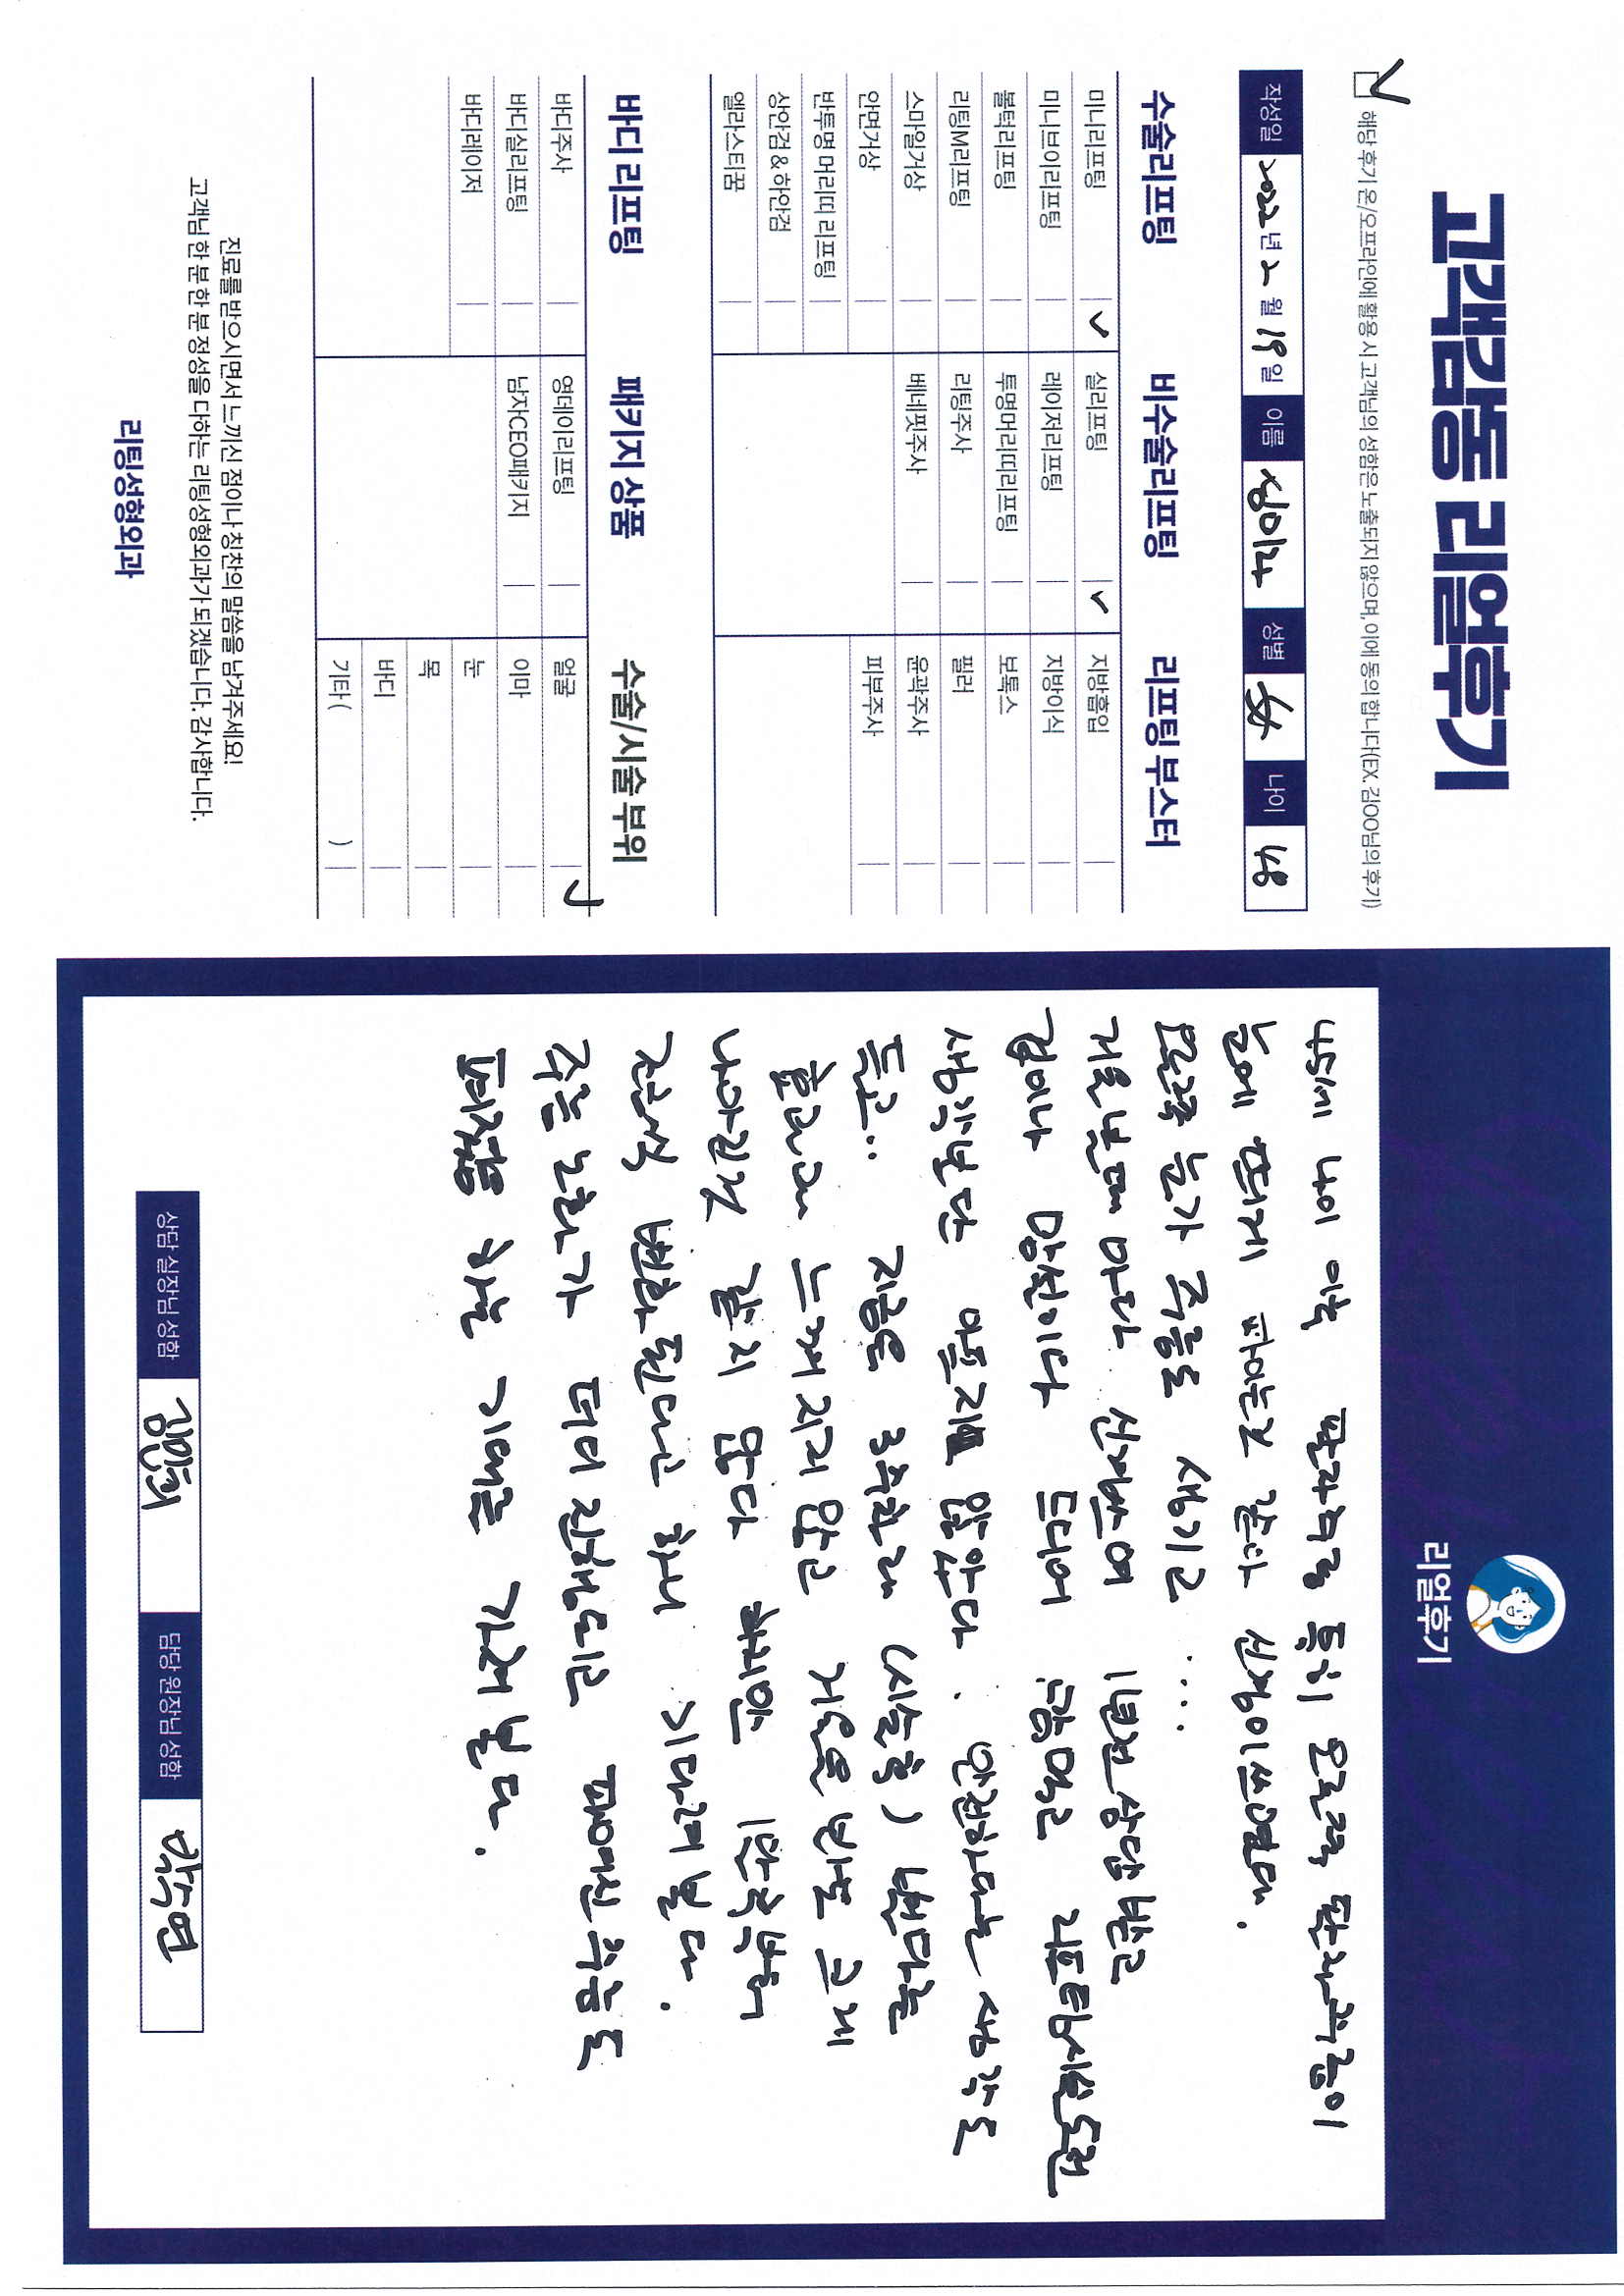 고객감동 리얼후기
해당 후기 온/오프라인에 활용 시 고객님의 성함은 노출되지 않으며, 이에 동의 합니다(EX. 김OO님의 후기)
작성일 2022년 2월 19일 이름 심미라 성별 女 나이 48
수술리프팅 비수술리프팅 리프팅 부스터
미니리프팅 실리프팅 지방흡입
미니브이리프팅 레이저리프팅 지방이식
볼턱리프팅 투명머리띠리프팅 보톡스
리팅M리프팅 리팅주사 필러
스마일거상 베네핏주사 윤곽주사
안면거상 피부주사
반투명 머리띠 리프팅
상안검 & 하안검
엘라스티꿈
바디 리프팅 패키지 상품 수술/시술 부위
바디주사 영데이리프팅 얼굴
바디실리프팅 남자CEO패키지 이마
바디레이저 눈
목
바디
기타 ( )
진료를 받으시면서 느끼신 점이나 칭찬의 말씀을 남겨주세요!
고객님 한 분 한 분 정성을 다하는 리팅성형외과가 되겠습니다. 감사합니다.
리팅성형외과
리얼후기
45세 나이 이후 팔자주름 특히 오른쪽 팔자주름이
눈에 띄게 파이는것 같아 신경이쓰였다.
오른쪽 눈가 주름도 생기고 ...
거울볼때 마다 신경쓰여 1년전 상담받고
겁이나 망설이다 드디어 큰맘먹고 리프팅시술도전
생각보단 아프지 않았다. 안전하다는 생각도
들고.. 지금은 3주차라 (시술후) 밴드는
효과가 느껴지지 않고 거울을 보면 크게
나아진것 같지 않다 하지만 1달후부터
조금씩 변화된다고 하니 기다려 본다.
주름 노화가 더디 진행되고 패여진 주름도
펴졌음 하는 기대를 가져 본다.
상담 실장님 성함 김민희 담당 원장님 성함 박수연